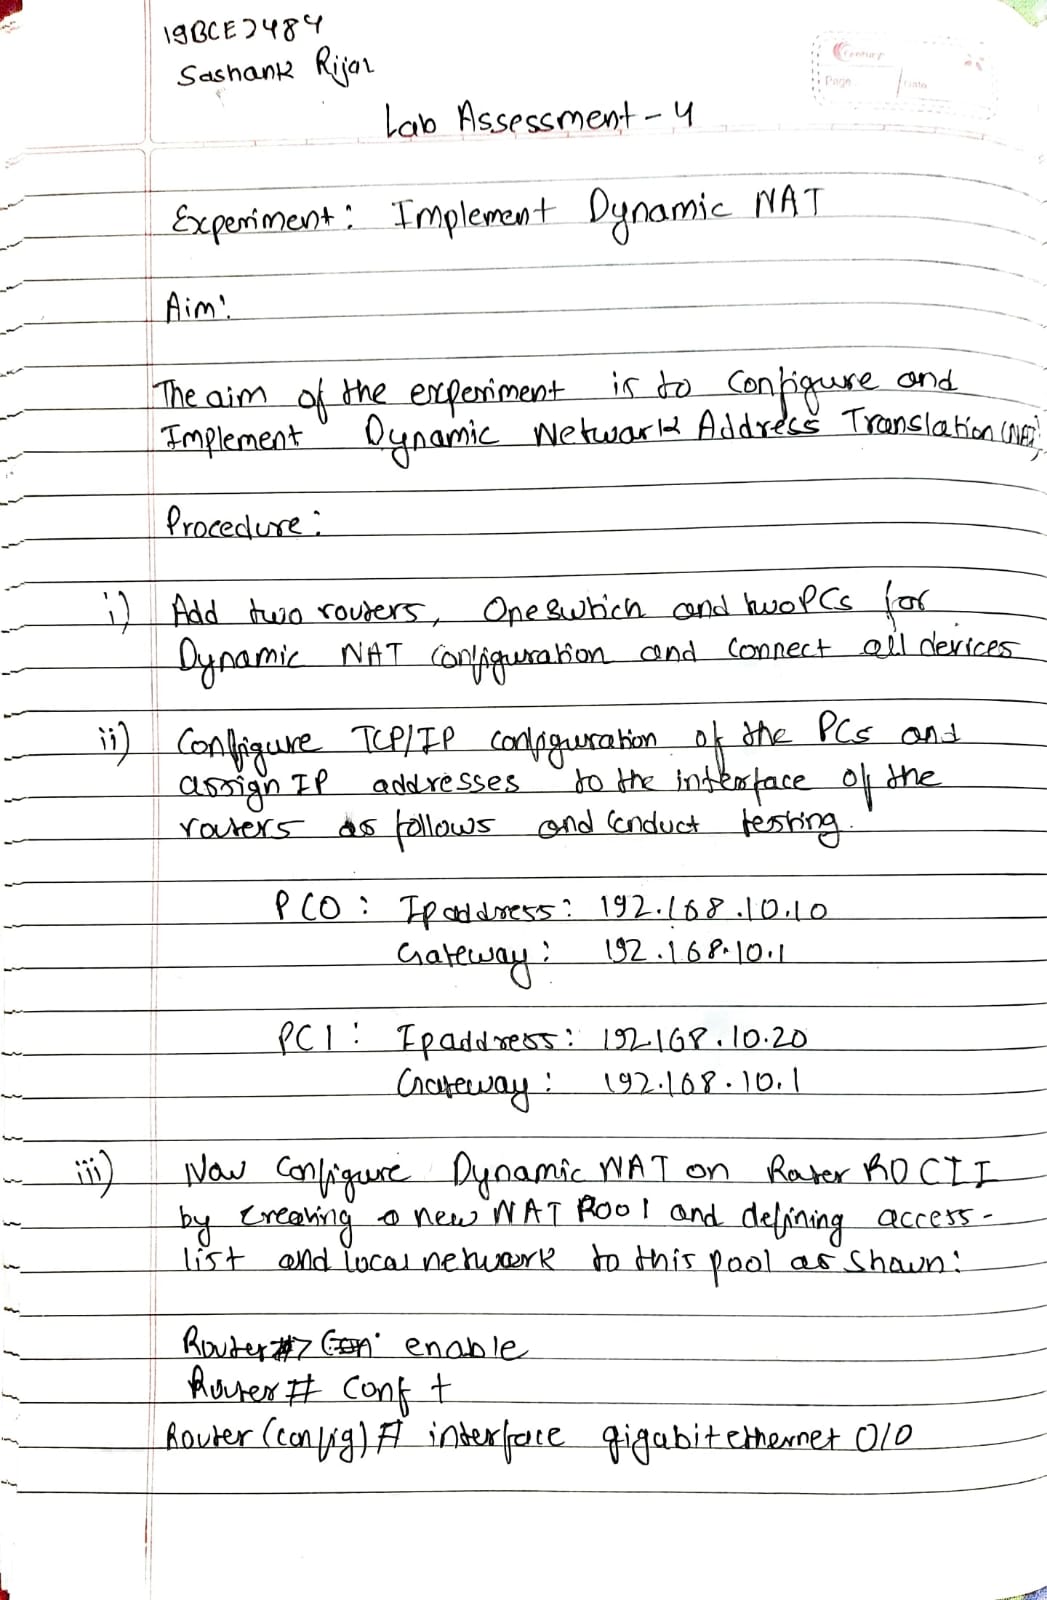 19BCE2484
Sashank Rijal
Century
Page
Date
Lab Assessment-4
Experiment: Implement Dynamic NAT
Aim:
The aim of the experiment is to configure and
Implement Dynamic Network Address Translation (NAT)
Procedure:
i) Add two routers, One swhich and two PCs for
Dynamic NAT configuration and connect all devices
ii) Configure TCP/IP configuration of the PCs and
assign IP addresses to the interface of the
routers as follows and conduct testing.
PC0: Ip address: 192.168.10.10
Gateway: 192.168.10.1
PC1: Ip address: 192.168.10.20
Gateway: 192.168.10.1
iii) Now configure Dynamic NAT on Router R0 CLI
by creating a new NAT Pool and defining access-
list and local network to this pool as shown:
Router> enable
Router# conf t
Router(config)# interface gigabitethernet 0/0